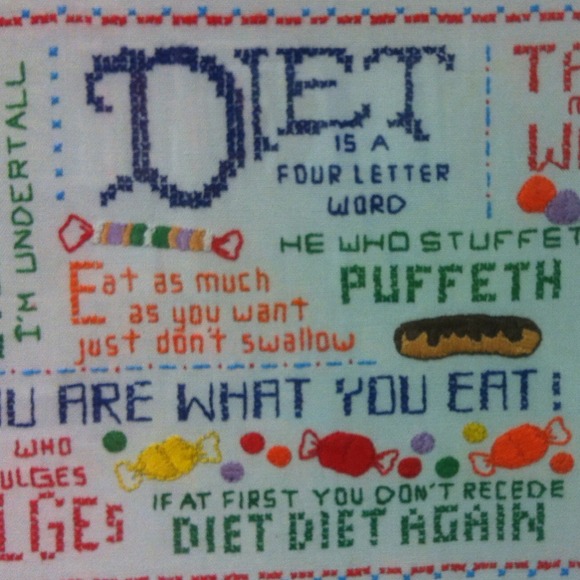 I'M UNDERTALL
DIET
IS A
FOUR LETTER
WORD
HE WHO STUFFET
PUFFETH
Eat as much
as you want
just don't swallow
U ARE WHAT YOU EAT!
WHO
ULGES
LGES
IF AT FIRST YOU DON'T RECEDE
DIET DIET AGAIN